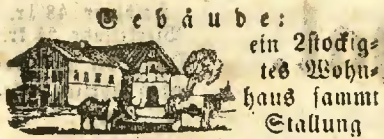 Gebäude:
ein 2stockig=
tes Wohn=
haus sammt
Stallung